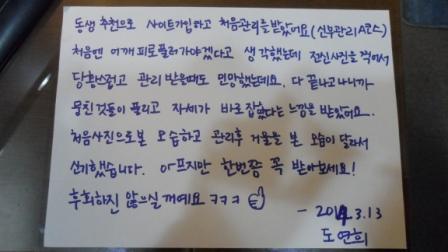 동생 추천으로 사이트가입하고 처음관리를받았어요 (신부관리A코스)
처음엔 어깨 피로풀러가야겠다고 생각했는데 전신사진을 찍어서
당황스럽고 관리 받을때도 민망했는데요. 다 끝나고나니까
뭉친것들이 풀리고 자세가 바로잡혔다는느낌을 받았어요.
처음사진으로본 모습하고 관리후 거울을 본 모습이 달라서
신기했습니다. 아프지만 한번쯤 꼭 받아보세요!
후회하진 않으실꺼예요 ㅋㅋㅋ
- 2014.3.13
도연희